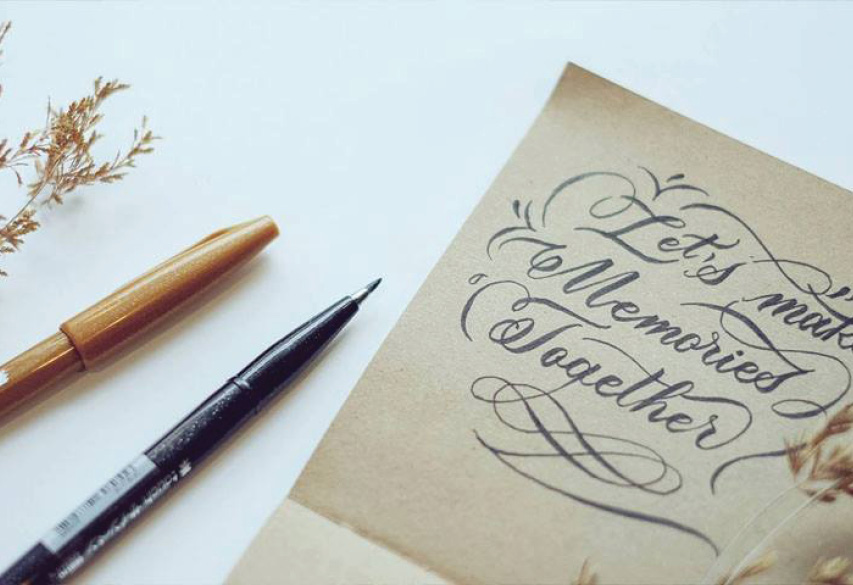 Let's make
Memories
Together